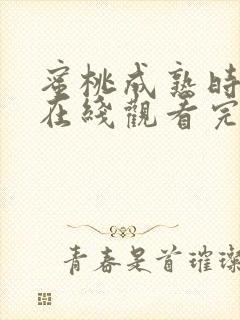 蜜桃成熟時
在綫觀看完
青春是首璀璨